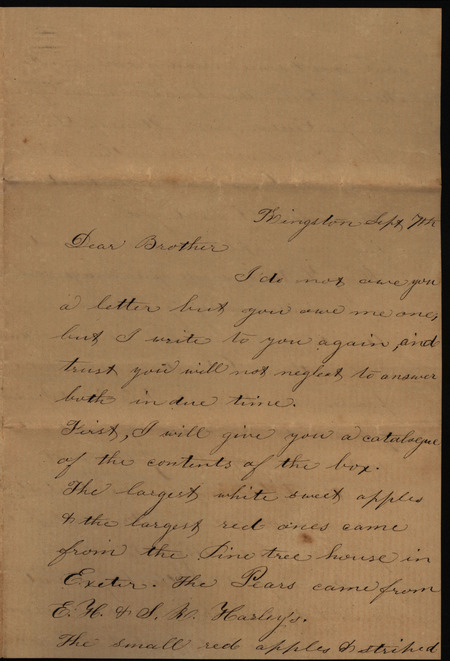 Kingston Sept 7th
Dear Brother
I do not owe you
a letter but you owe me one,
but I write to you again, and
trust you will not neglect to answer
both in due time.
First, I will give you a catalogue
of the contents of the box.
The largest white sweet apples
& the largest red ones came
from the Pine tree house in
Exeter. The Pears came from
E. H. & S. W. Harley's.
The small red apples & striped